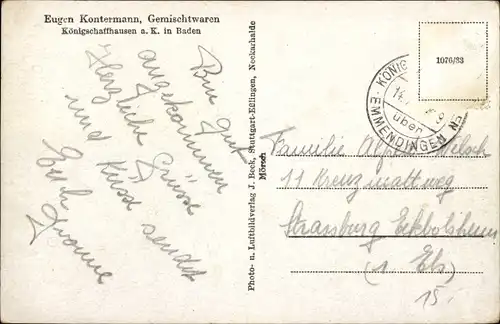 Eugen Kontermann, Gemischtwaren
Königschaffhausen a. K. in Baden
Bin gut
angekommen
Herzliche Grüsse
und Küsse sendet
Euch
Yvonne
Photo- u. Luftbildverlag J. Beck, Stuttgart-Eßlingen, Neckarhalde
Mörsch
1076/33
KÖNIG
14.
über
EMMENDINGEN
Familie Welsch
11 Kreuzmattweg
Strassburg Eckbolsheim
(1 Els)
15.